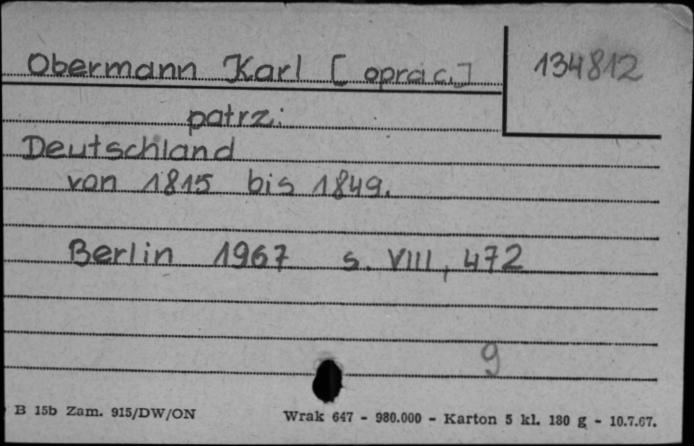 Obermann Karl [oprac.] 134812
patrz:
Deutschland
von 1815 bis 1849.
Berlin 1967 s. VIII, 472
9
B 15b Zam. 915/DW/ON Wrak 647 - 980.000 - Karton 5 kl. 180 g - 10.7.67.